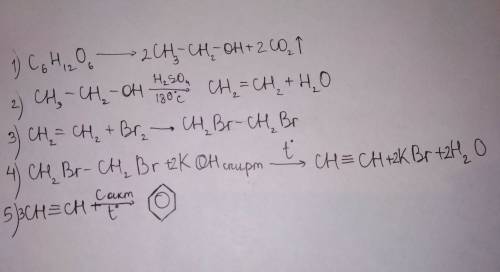 1) C₆H₁₂O₆ ⟶ 2CH₃-CH₂-OH + 2CO₂↑
2) CH₃-CH₂-OH H₂SO₄ 180°C → CH₂=CH₂ + H₂O
3) CH₂=CH₂ + Br₂ → CH₂Br-CH₂Br
4) CH₂Br-CH₂Br + 2KOH спирт t° → CH≡CH + 2KBr + 2H₂O
5) 3CH≡CH C акт t° →